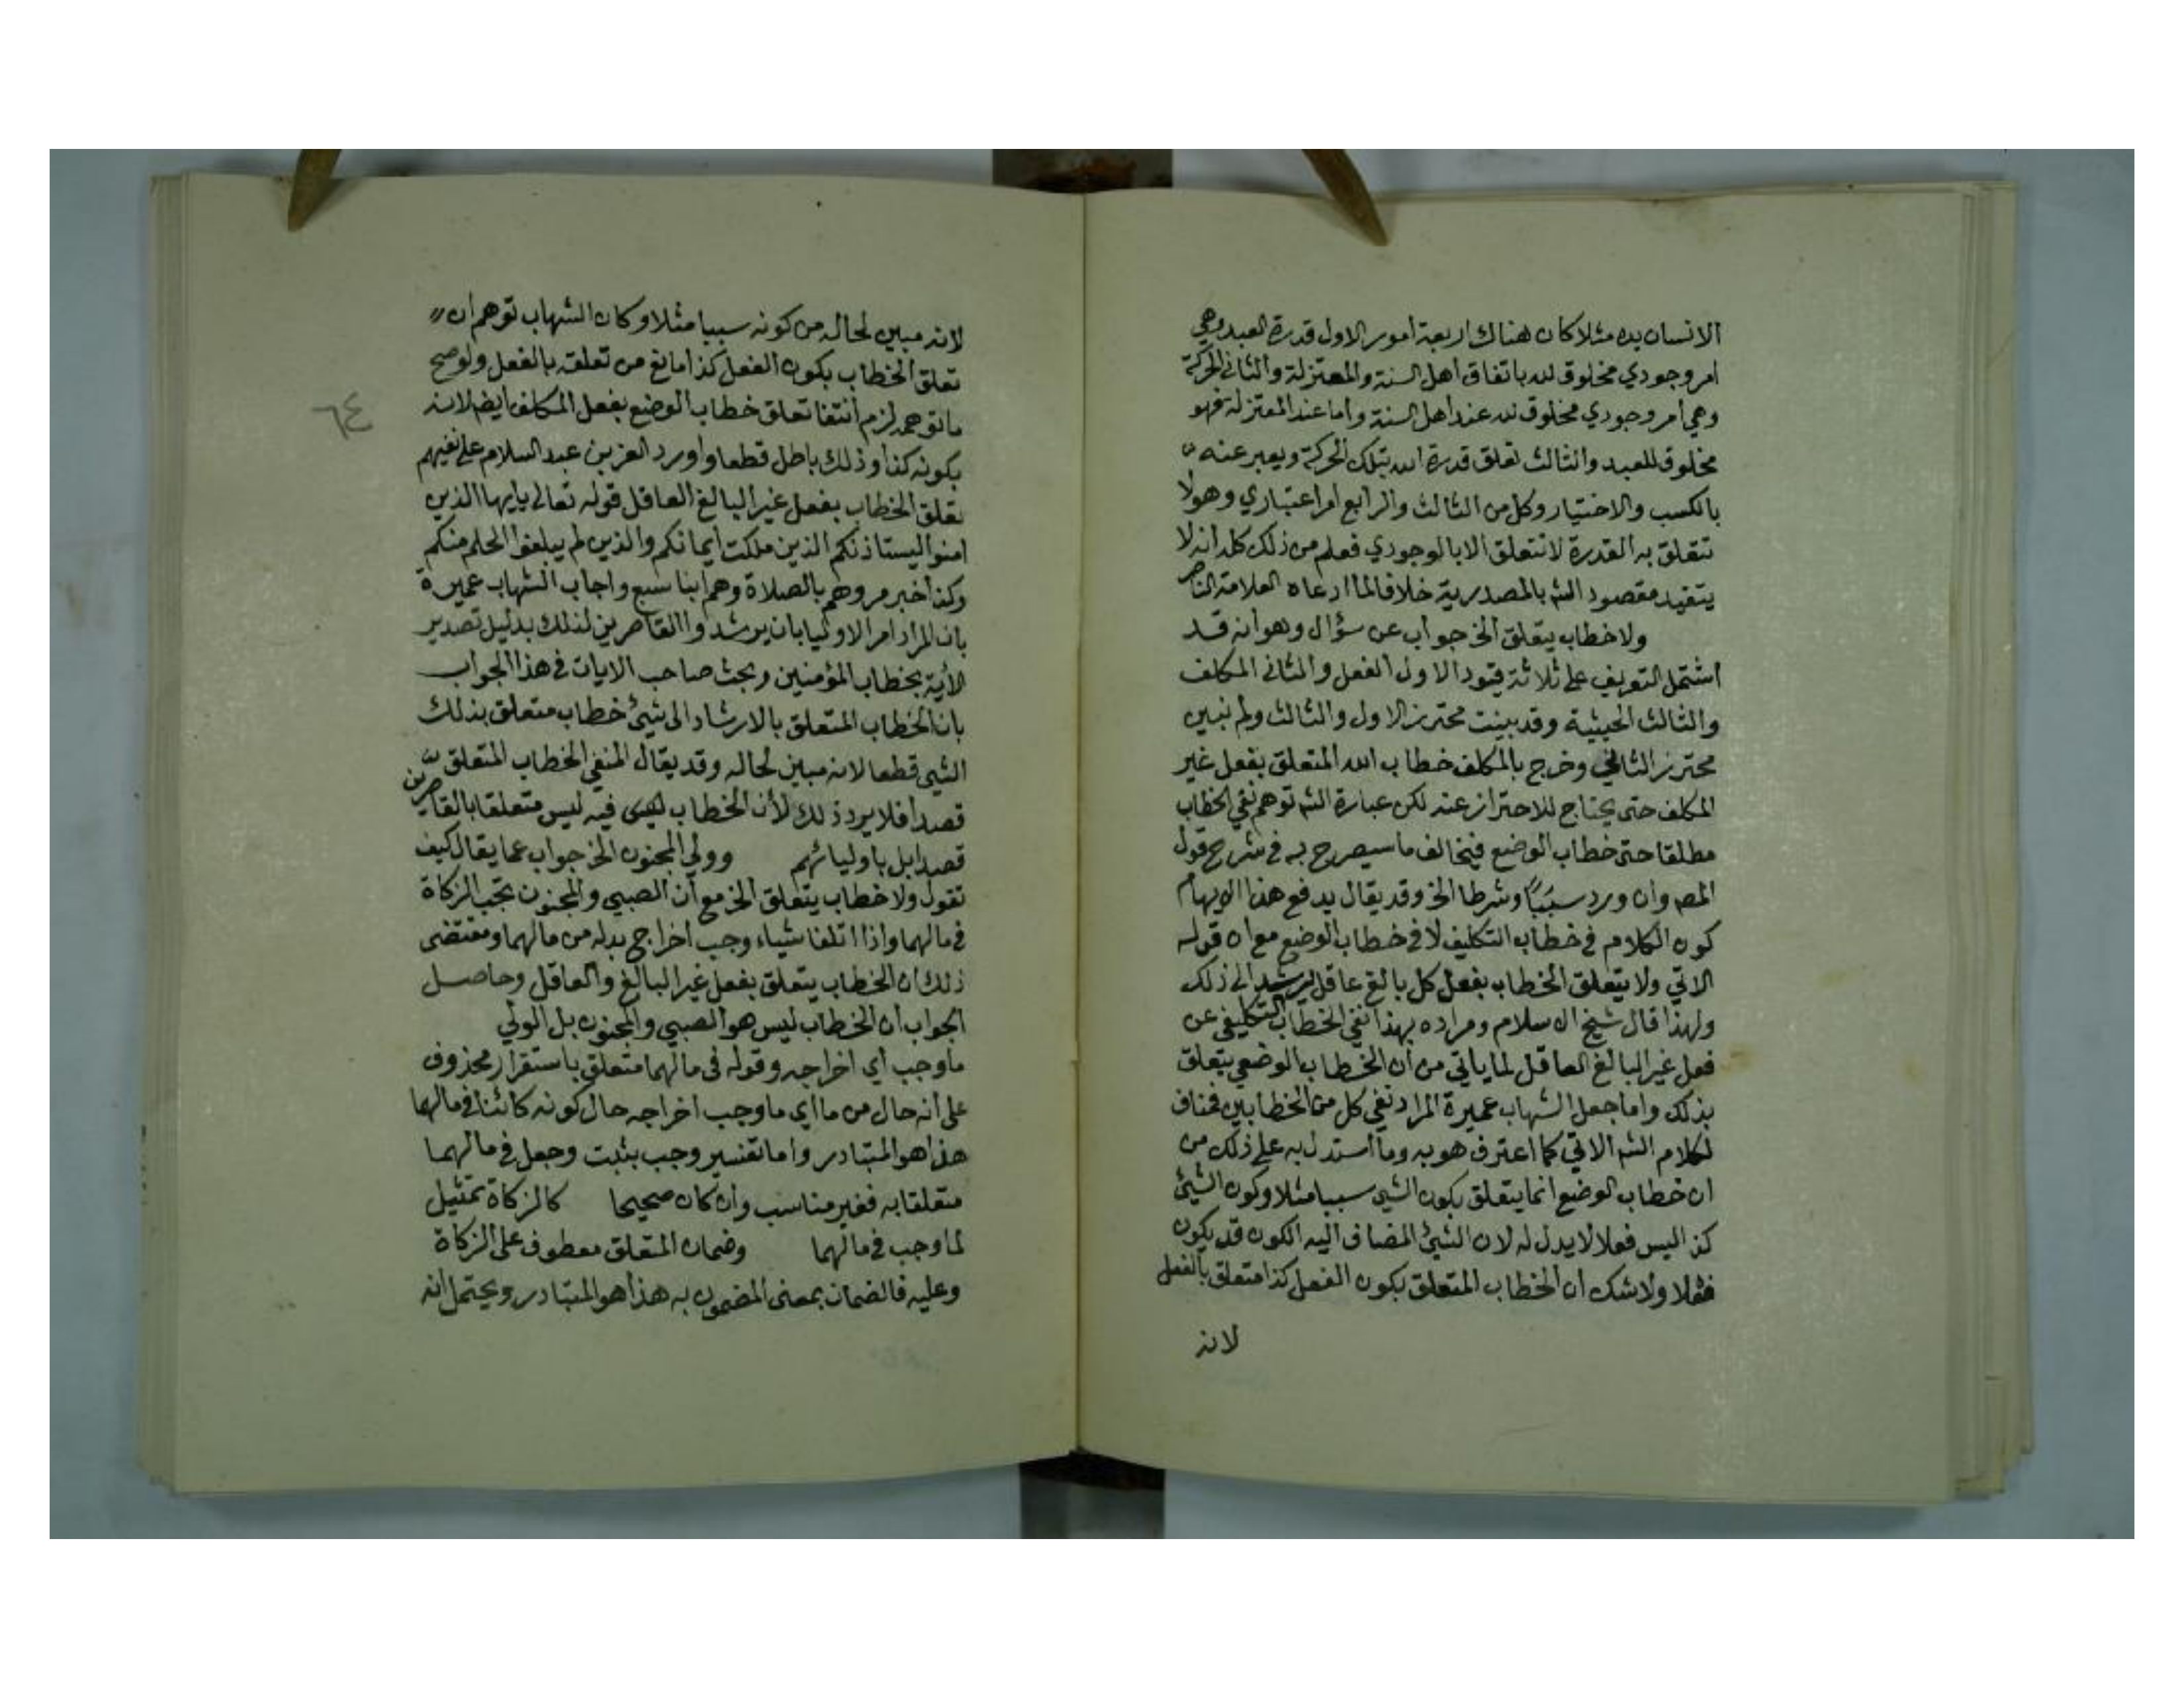 الانسان يده مثلا كان هناك اربعة امور الاول قدرة العبد وهي
امر وجودي مخلوق لله باتفاق اهل السنة والمعتزلة والثاني الحركة
وهي امر وجودي مخلوق لله عند اهل السنة واما عند المعتزلة فهو
مخلوق للعبد والثالث تعلق قدرة الله بتلك الحركة ويعبر عنه
بالكسب والاختيار وكل من الثالث والرابع امر اعتباري وهو لا
تتعلق به القدرة لا تتعلق الا بالوجودي فعلم من ذلك كله انه لا
يتقيد مقصود الش بالمصدرية خلافا لما ادعاه العلامة الناصر
ولا خطاب يتعلق الخ جواب عن سؤال وهو انه قد
اشتمل التعريف على ثلاثة قيود الاول الفعل والثاني المكلف
والثالث الحيثية وقد بينت محترز الاول والثالث ولم تبين
محترز الثاني وخرج بالمكلف خطاب الله المتعلق بفعل غير
المكلف حتى يحتاج للاحتراز عنه لكن عبارة الش توهم نفي الخطاب
مطلقا حتى خطاب الوضع فيخالف ما سيصرح به في شرح قول
المص وان ورد سببا وشرطا الخ وقد يقال يدفع هذا الايهام
كون الكلام في خطاب التكليف لا في خطاب الوضع مع ان قوله
الاتي ولا يتعلق الخطاب بفعل كل بالغ عاقل يرشد الى ذلك
ولهذا قال شيخ الاسلام ومراده بهذا نفي الخطاب التكليفي عن
فعل غير البالغ العاقل لما ياتي من ان الخطاب الوضعي يتعلق
بذلك واما جعل الشهاب عميرة المراد نفي كل من الخطابين فمناف
لكلام الش الاتي كما اعترف هو به وما استدل به على ذلك من
ان خطاب الوضع انما يتعلق بكون الشي سببا مثلا وكون الشيئ
كذا ليس فعلا لا يدل له لان الشيئ المضاف اليه الكون قد يكون
فعلا ولا شك ان الخطاب المتعلق بكون الفعل كذا متعلق بالفعل
لانه
لانه مبين لحاله من كونه سببا مثلا وكان الشهاب توهم ان
تعلق الخطاب بكون الفعل كذا مانع من تعلقه بالفعل ولو صح
ما توهمه لزم انتفا تعلق خطاب الوضع بفعل المكلف ايضا لانه
٦٤
بكونه كذا وذلك باطل قطعا واورد العز بن عبد السلام على نفيهم
تعلق الخطاب بفعل غير البالغ العاقل قوله تعالى يايها الذين
امنوا ليستاذنكم الذين ملكت ايمانكم والذين لم يبلغوا الحلم منكم
وكذا خبر مروهم بالصلاة وهم ابنا سبع واجاب الشهاب عميرة
بان المراد امر الاوليا بان يرشدوا القاصرين لذلك بدليل تصدير
الأية بخطاب المؤمنين وبحث صاحب الايات في هذا الجواب
بان الخطاب المتعلق بالارشاد الى شيئ خطاب متعلق بذلك
الشي قطعا لانه مبين لحاله وقد يقال المنفي الخطاب المتعلق
قصدا فلا يرد ذلك لأن الخطاب فيه ليس متعلقا بالقاصرين
قصدا بل باوليائهم وولي المجنون الخ جواب عما يقال كيف
تقول ولا خطاب يتعلق الخ مع ان الصبي والمجنون تجب الزكاة
في مالهما واذا اتلفا شياء وجب اخراج بدله من مالهما ومقتضى
ذلك ان الخطاب يتعلق بفعل غير البالغ والعاقل وحاصل
الجواب ان الخطاب ليس هو الصبي والمجنون بل الولي
ما وجب اي اخراجه وقوله في مالهما متعلق باستقرار محذوف
على انه حال من ما اي ما وجب اخراجه حال كونه كائنا في مالهما
هذا هو المتبادر واما تفسير وجب بثبت وجعل في مالهما
متعلقا به فغير مناسب وان كان صحيحا كالزكاة تمثيل
لما وجب في مالهما وضمان المتعلق معطوف على الزكاة
وعليه فالضمان بمعنى المضمون به هذا هو المتبادر ويحتمل انه